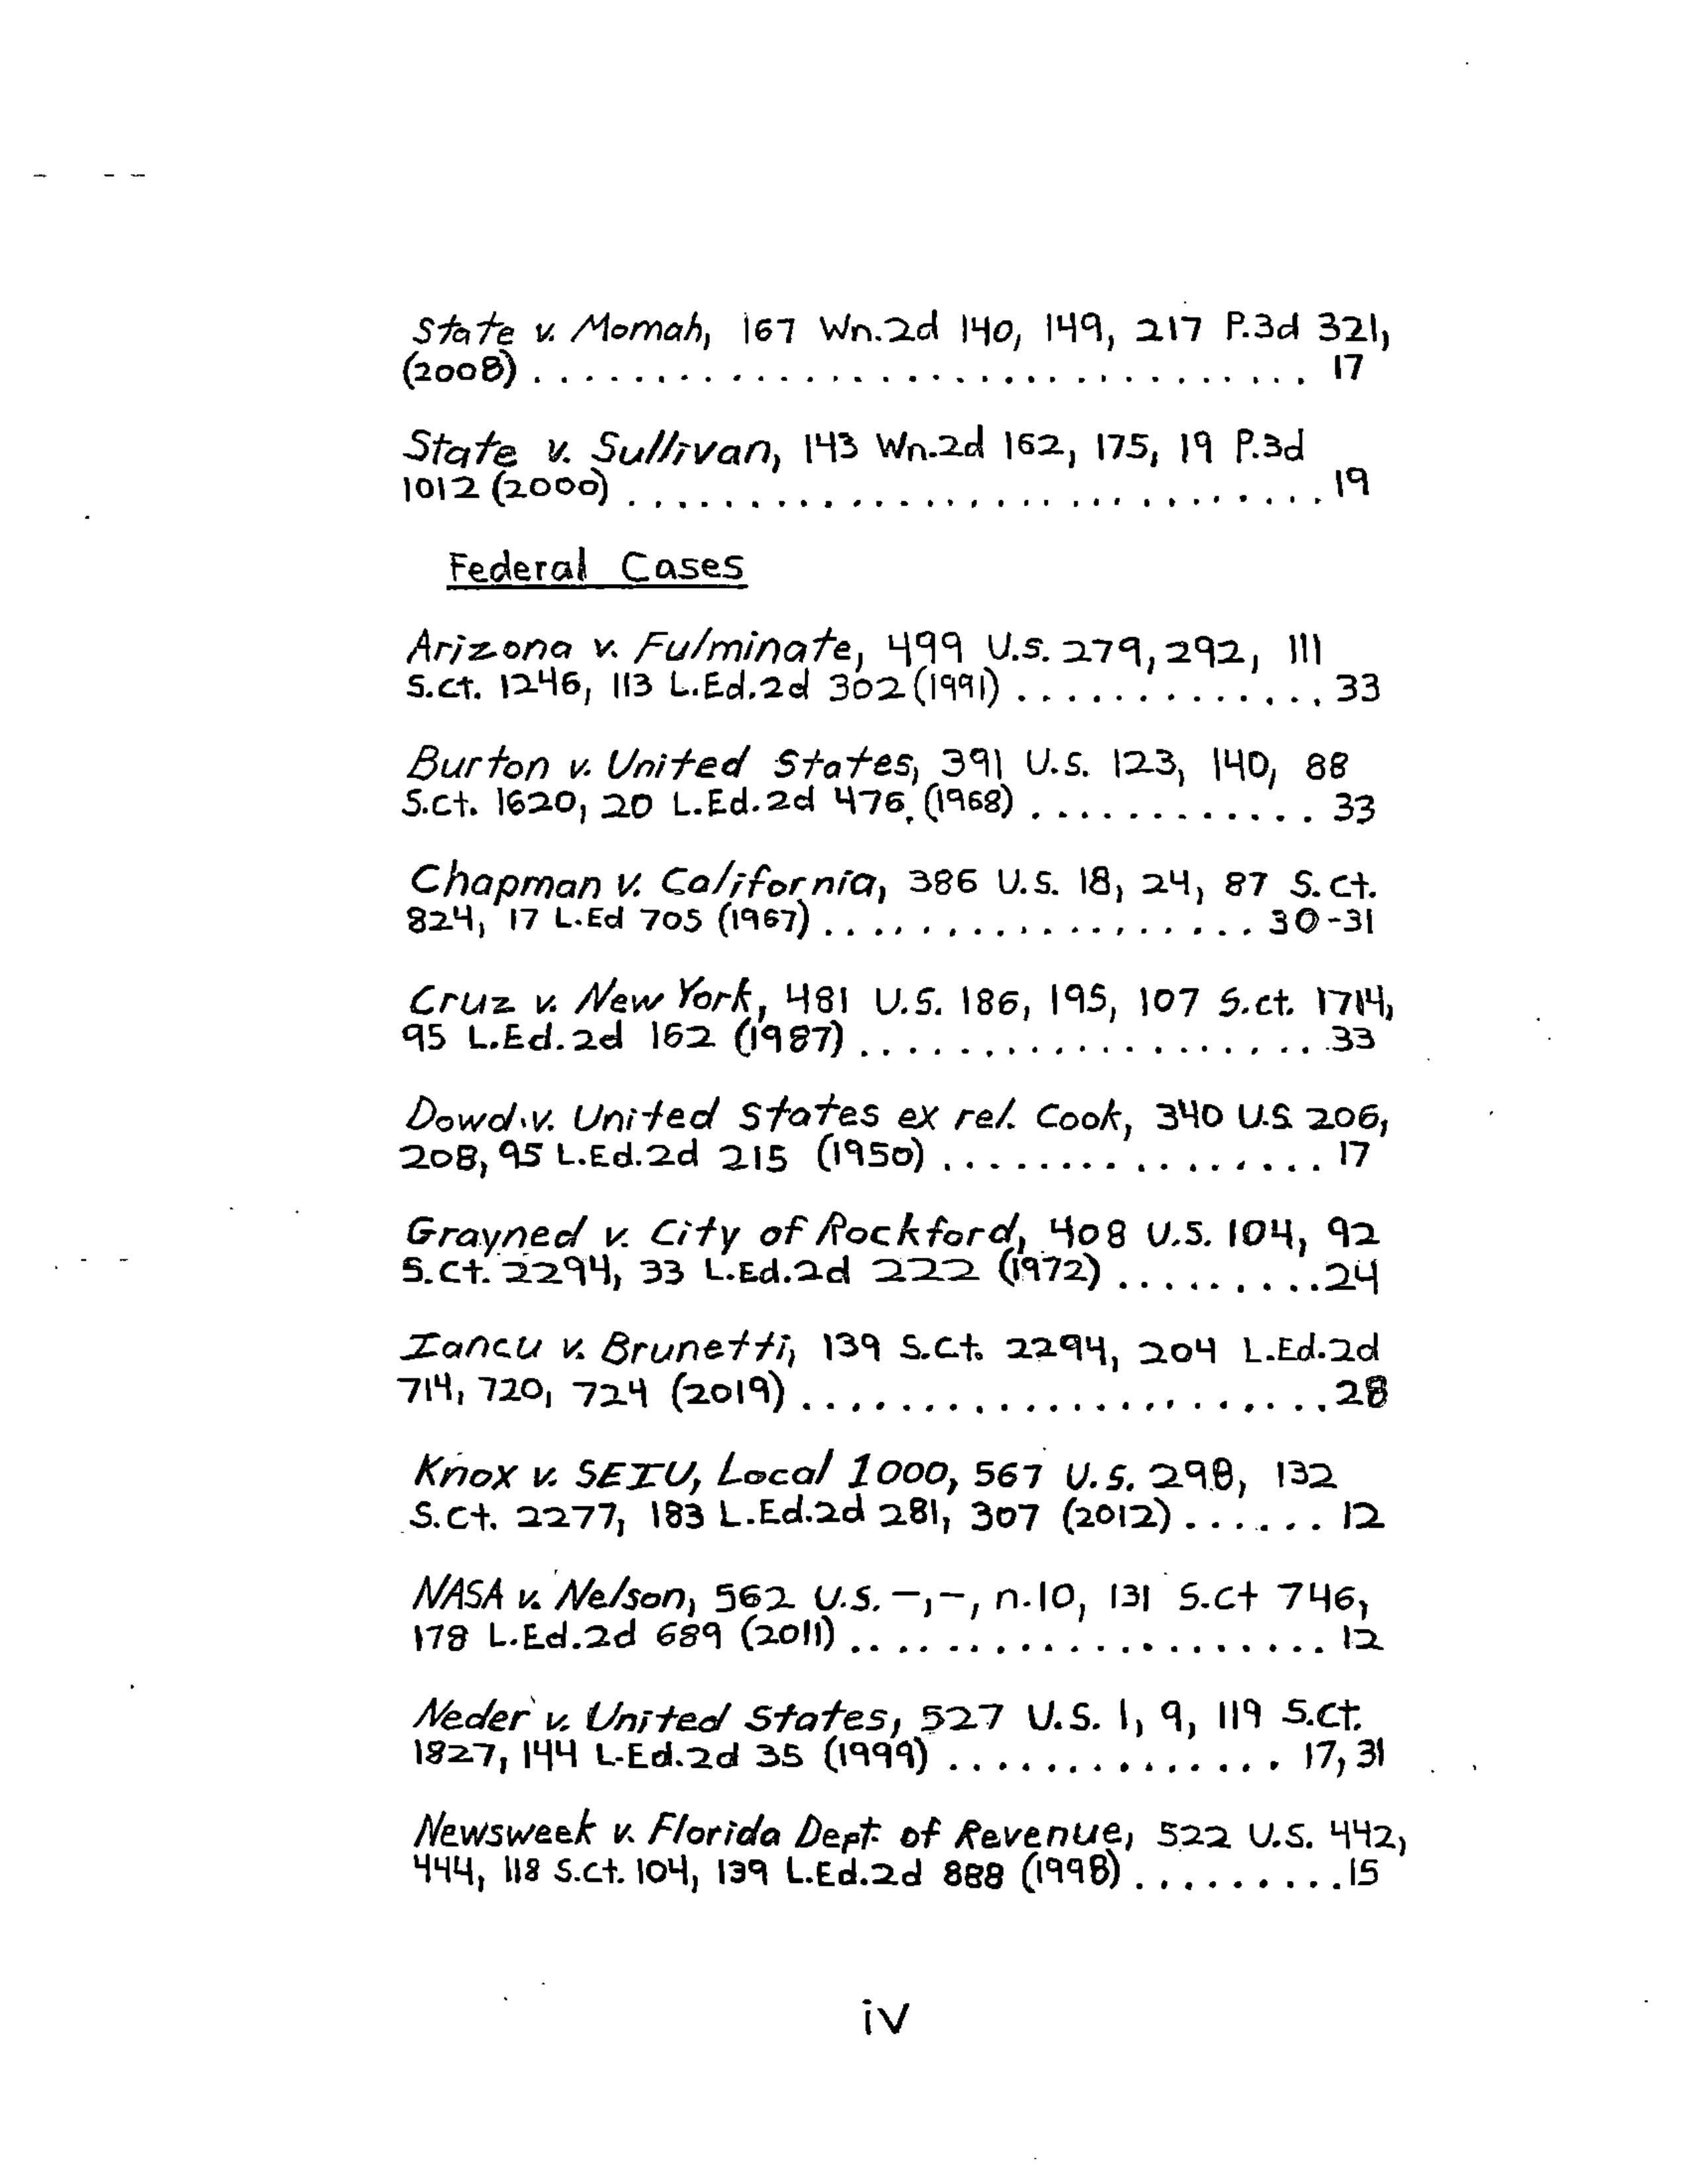 State v. Momah, 167 Wn.2d 140, 149, 217 P.3d 321,
(2008) . . . . . . . . . . . . . . . . . . . . . . . . . . . . . . . . 17
State v. Sullivan, 143 Wn.2d 162, 175, 19 P.3d
1012 (2000) . . . . . . . . . . . . . . . . . . . . . . . . . . . . . 19
Federal Cases
Arizona v. Fulminate, 499 U.S. 279, 292, 111
S.ct. 1246, 113 L.Ed.2d 302 (1991) . . . . . . . . . . . . . 33
Burton v. United States, 391 U.S. 123, 140, 88
S.ct. 1620, 20 L.Ed.2d 476, (1968) . . . . . . . . . . . . 33
Chapman v. California, 386 U.S. 18, 24, 87 S.ct.
824, 17 L.Ed 705 (1967) . . . . . . . . . . . . . . . . . . 30-31
Cruz v. New York, 481 U.S. 186, 195, 107 S.ct. 1714,
95 L.Ed.2d 162 (1987) . . . . . . . . . . . . . . . . . . . 33
Dowd v. United States ex rel. Cook, 340 U.S. 206,
208, 95 L.Ed.2d 215 (1950) . . . . . . . . . . . . . . . . 17
Grayned v. City of Rockford, 408 U.S. 104, 92
S.ct. 2294, 33 L.Ed.2d 222 (1972) . . . . . . . . . 24
Iancu v. Brunetti, 139 S.ct. 2294, 204 L.Ed.2d
714, 720, 724 (2019) . . . . . . . . . . . . . . . . . . . . . . 28
Knox v. SEIU, Local 1000, 567 U.S. 298, 132
S.ct. 2277, 183 L.Ed.2d 281, 307 (2012) . . . . . . 12
NASA v. Nelson, 562 U.S. -,-, n.10, 131 S.ct 746,
178 L.Ed.2d 689 (2011) . . . . . . . . . . . . . . . . . . . . 12
Neder v. United States, 527 U.S. 1, 9, 119 S.ct.
1827, 144 L.Ed.2d 35 (1999) . . . . . . . . . . . . . . 17, 31
Newsweek v. Florida Dept. of Revenue, 522 U.S. 442,
444, 118 S.ct. 104, 139 L.Ed.2d 888 (1998) . . . . . . . . . 15
iv